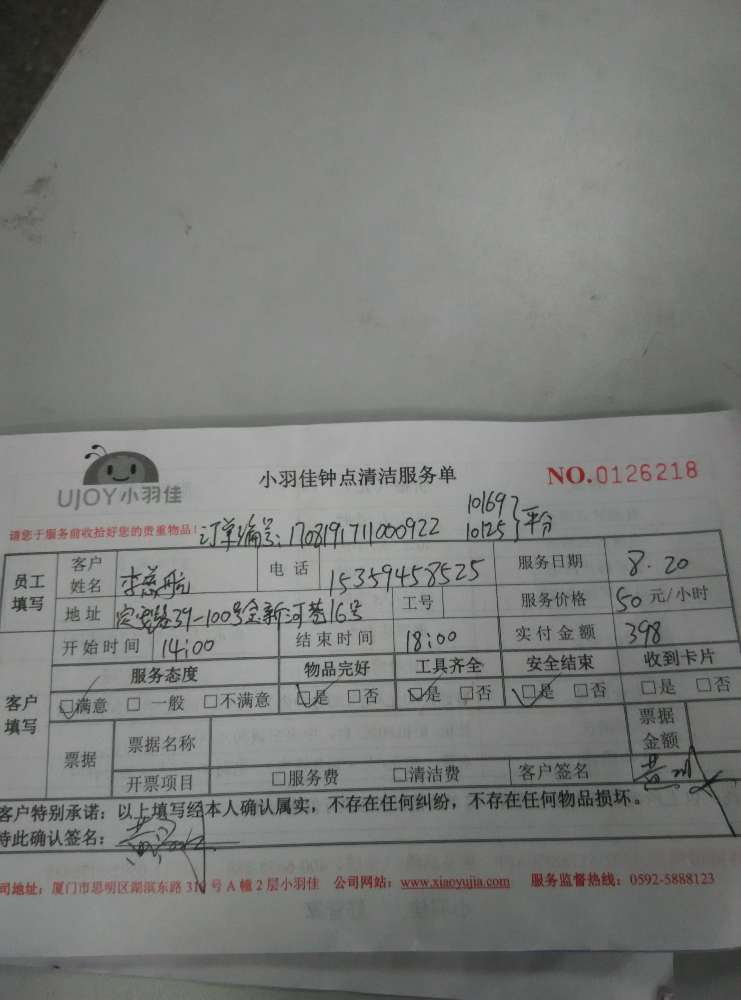 UJOY小羽佳
小羽佳钟点清洁服务单
NO.0126218
请您于服务前收拾好您的贵重物品!
订单编号:1708191711000922
10169
10125 }平分
员工填写
客户姓名 李慈航 电话 15359458525 服务日期 8.20
地址 39-100号 16号 工号 服务价格 50元/小时
客户填写
开始时间 14:00 结束时间 18:00 实付金额 398
服务态度 物品完好 工具齐全 安全结束 收到卡片
☑满意 □一般 □不满意 ☑是 □否 ☑是 □否 ☑是 □否 □是 □否
票据 票据名称 票据金额
开票项目 □服务费 □清洁费 客户签名
客户特别承诺:以上填写经本人确认属实,不存在任何纠纷,不存在任何物品损坏。
特此确认签名:
司地址:厦门市思明区湖滨东路 号A幢2层小羽佳 公司网站:www.xiaoyujia.com 服务监督热线:0592-5888123